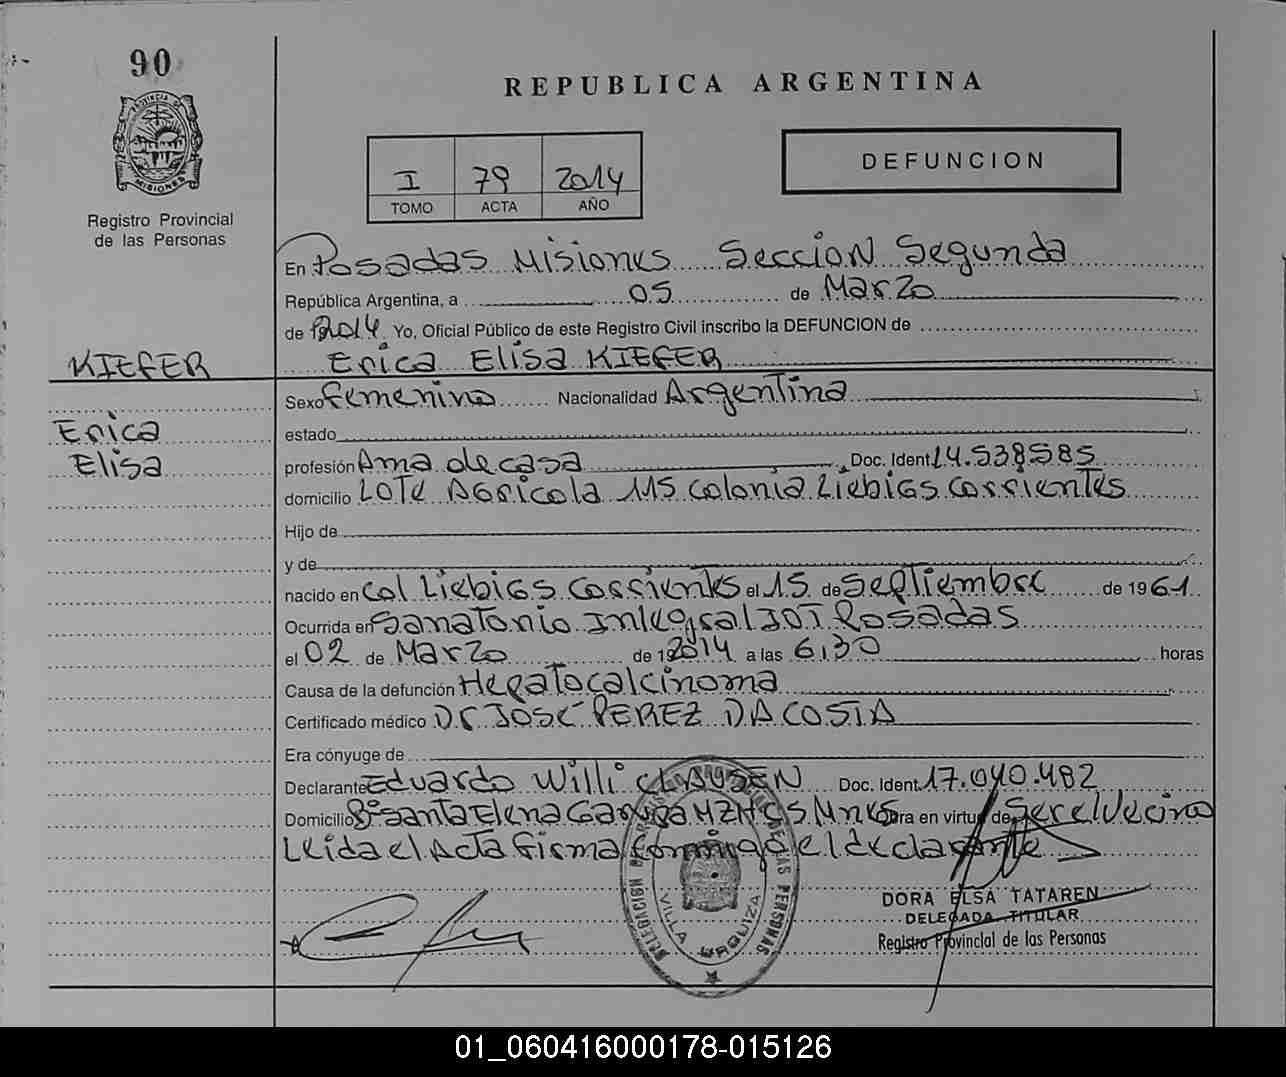 90
PROVINCIA DE
MISIONES
Registro Provincial
de las Personas
REPUBLICA ARGENTINA
I 79 2014
TOMO ACTA AÑO
DEFUNCION
En Posadas Misiones Seccion Segunda
República Argentina, a 05 de Marzo
de 2014 Yo, Oficial Público de este Registro Civil inscribo la DEFUNCION de
KIEFER Erica Elisa KIEFER
Sexo femenino Nacionalidad Argentina
Erica
estado
Elisa
profesión Ama de casa Doc. Ident. 14.538585
domicilio LOTE Agricola 115 Colonia Liebigs Corrientes
Hijo de
y de
nacido en Col Liebigs Corrientes el 15 de Septiembre de 1961
Ocurrida en Sanatorio Integral IOT Posadas
el 02 de Marzo de 2014 a las 6,30 horas
Causa de la defunción Hepatocalcinoma
Certificado médico Dr JOSÉ PEREZ DACOSTA
Era cónyuge de
Declarante Eduardo Willi CLAUSEN Doc. Ident. 17.040.482
Domicilio Bº Santa Elena Garupa MZH CS Mnes Obra en virtud de Ser el Vecino
Leida el Acta firma conmigo el declarante
DELEGACION DE LAS PERSONAS
VILLA URQUIZA
DORA ELSA TATAREN
DELEGADA TITULAR
Registro Provincial de las Personas
01_060416000178-015126